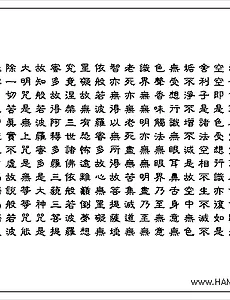 空空即是色受想行識亦復如是
舍利子是諸法空相不生不滅不
垢不淨不增不減是故空中無色
無受想行識無眼耳鼻舌身意無
色聲香味觸法無眼界乃至無意
識界無無明亦無無明盡乃至無
老死亦無老死盡無苦集滅道無
智亦無得以無所得故菩提薩埵
依般若波羅密多故心無罣礙無
罣礙故無有恐怖遠離顛倒夢想
究竟涅槃三世諸佛依般若波羅
密多故得阿耨多羅三藐三菩提
故知般若波羅密多是大神咒是
大明咒是無上咒是無等等咒能
除一切苦真實不虛故說般若波
www.HAN